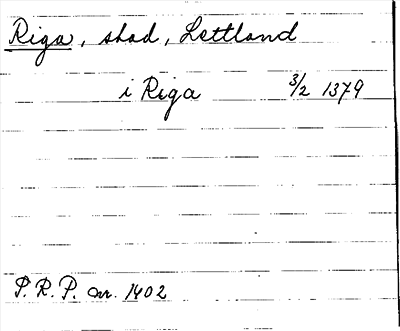 Riga, stad, Lettland
i Riga 3/2 1379
P.R.P. nr. 1402